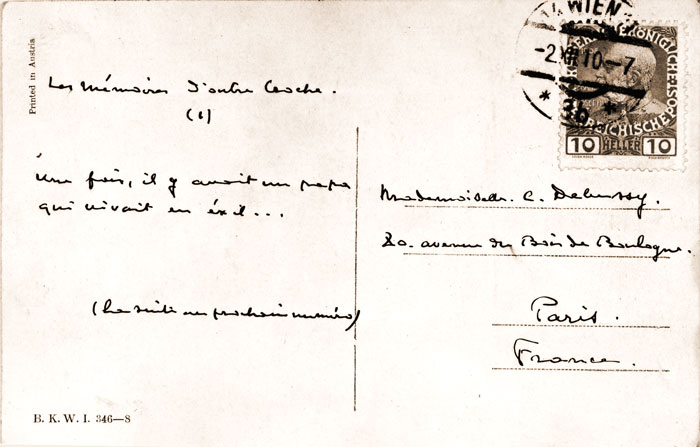 Printed in Austria
Les Mémoires d'outre Croche.
(1)
Une fois, il y avait un papa
qui vivait en éxil...
(La suite au prochain numéro)
B. K. W. I. 346—8
WIEN
-2.XII.10-7
KAISERLICHE KÖNIGLICHE
ÖSTERREICHISCHE POST
10 HELLER 10
Mademoiselle. C. Debussy.
80. avenue du Bois de Boulogne.
Paris.
France.